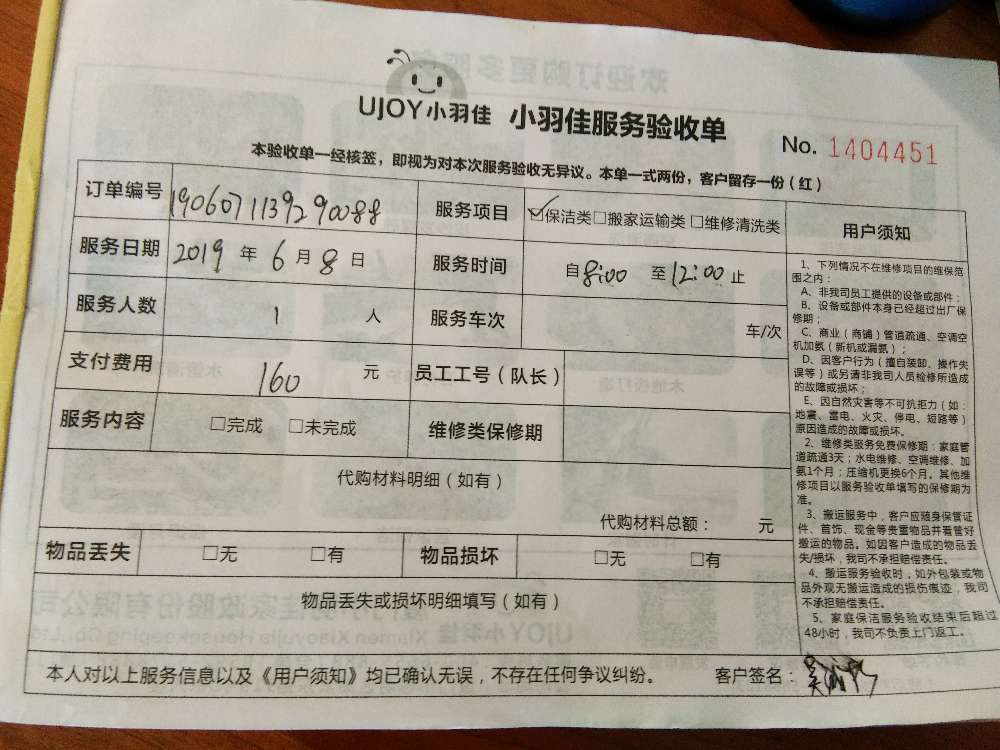 UJOY小羽佳 小羽佳服务验收单
No. 1404451
本验收单一经核签，即视为对本次服务验收无异议。本单一式两份，客户留存一份（红）
订单编号 1906071139290088 服务项目 ☑保洁类□搬家运输类□维修清洗类
服务日期 2019 年 6 月 8 日 服务时间 自 8:00 至 12:00 止
服务人数 1 人 服务车次 车/次
支付费用 160 元 员工工号（队长）
服务内容 □完成 □未完成 维修类保修期
代购材料明细（如有）
代购材料总额： 元
物品丢失 □无 □有 物品损坏 □无 □有
物品丢失或损坏明细填写（如有）
本人对以上服务信息以及《用户须知》均已确认无误，不存在任何争议纠纷。 客户签名：
用户须知
1、下列情况不在维修项目的维保范
围之内：
A、非我司员工提供的设备或部件；
B、设备或部件本身已经超过出厂保
修期；
C、商业（商铺）管道疏通、空调空
机加氨（新机或漏氨）；
D、因客户行为（擅自装卸、操作失
误等）或另请非我司人员检修所造成
的故障或损坏；
E、因自然灾害等不可抗拒力（如：
地震、雷电、火灾、停电、短路等）
原因造成的故障或损坏。
2、维修类服务免费保修期：家庭管
道疏通3天；水电维修、空调维修、加
氨1个月；压缩机更换6个月。其他维
修项目以服务验收单填写的保修期为
准。
3、搬运服务中，客户应随身保管证
件、首饰、现金等贵重物品并看管好
搬运的物品。如因客户造成的物品丢
失/损坏，我司不承担赔偿责任。
4、搬运服务验收时，如外包装或物
品外观无搬运造成的损伤痕迹，我司
不承担赔偿责任。
5、家庭保洁服务验收结束后超过
48小时，我司不负责上门返工。